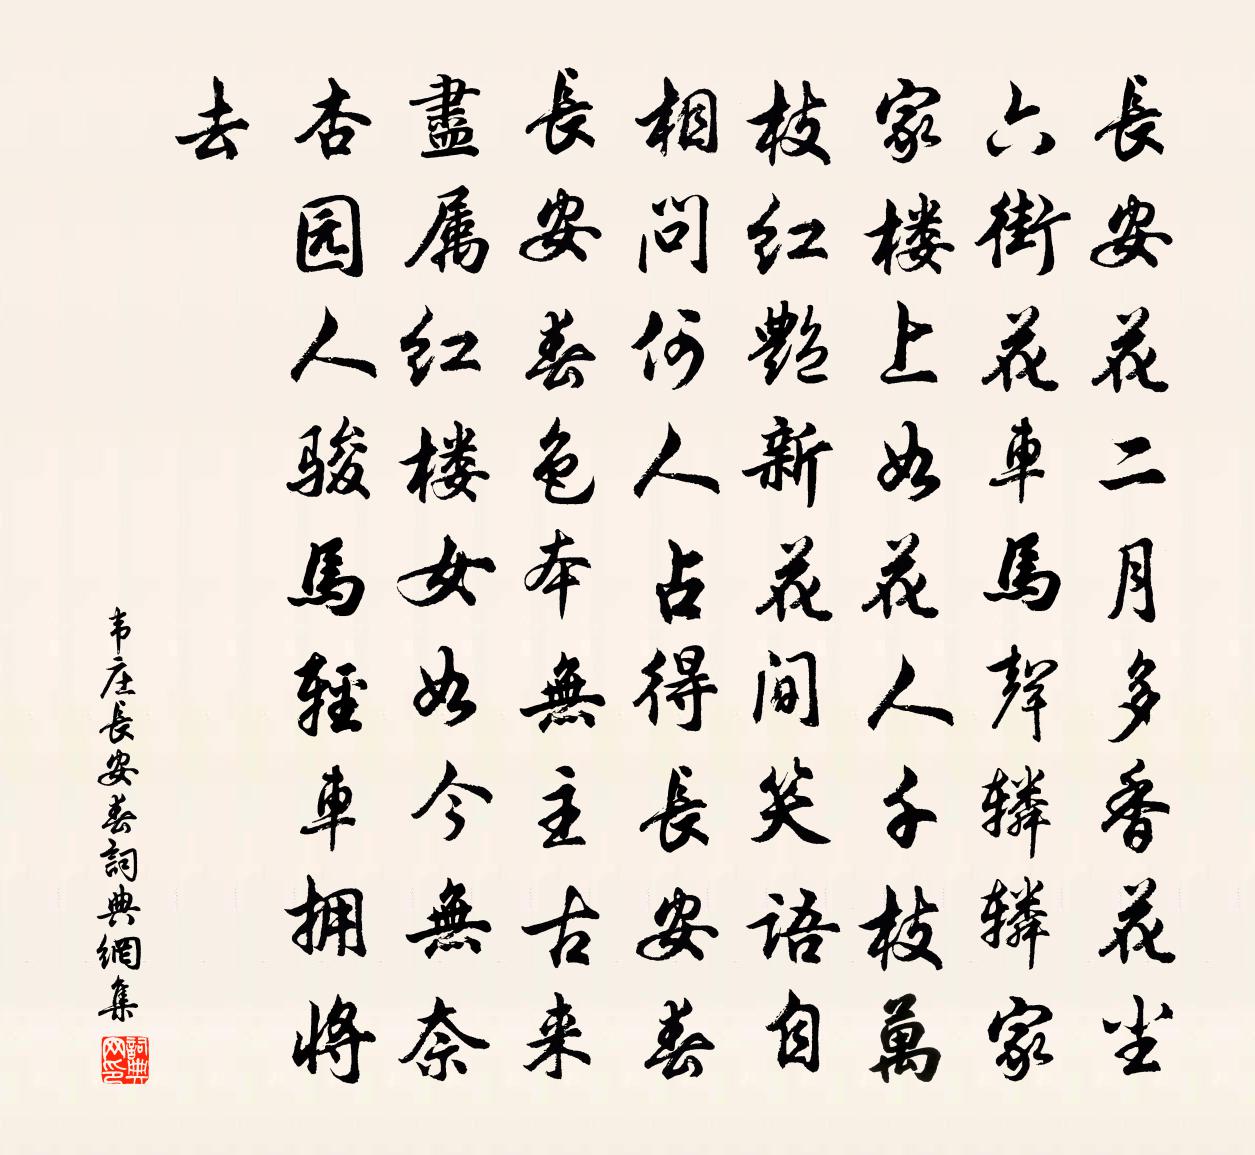 長安花二月多香花尘
六街花車馬聲辚辚家
家楼上如花人千枝萬
枝红艷新花间笑语自
相问何人占得長安春
長安春色本無主古来
盡属红楼女如今無奈
杏园人骏馬輕車拥将
去
韦庄長安春詞典網集
詞典网印